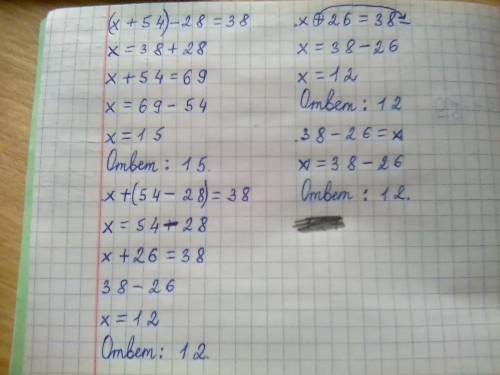 (x + 54) - 28 = 38
x = 38 + 28
x + 54 = 69
x = 69 - 54
x = 15
Ответ: 15.
x + (54 - 28) = 38
x = 54 - 28
x + 26 = 38
38 - 26
x = 12
Ответ: 12.
x + 26 = 38
x = 38 - 26
x = 12
Ответ: 12
38 - 26 = x
x = 38 - 26
Ответ: 12.